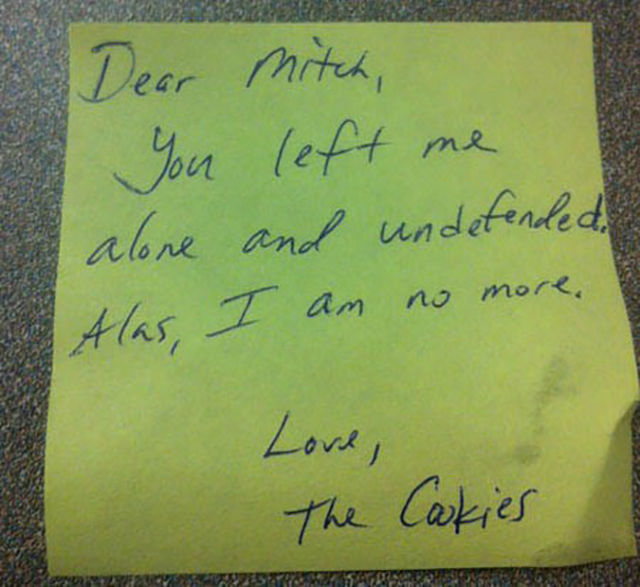 Dear Mitch,
You left me
alone and undefended.
Alas, I am no more.
Love,
The Cookies